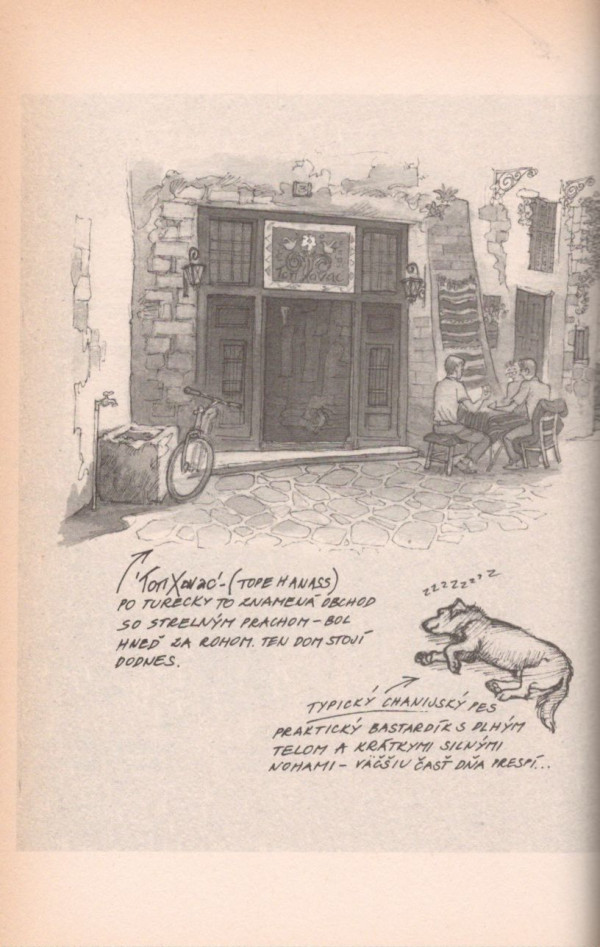 Τοπ Χανας
'Τοπ Χανας' - (TOPE HANASS)
PO TURECKY TO ZNAMENÁ OBCHOD
SO STRELNÝM PRACHOM - BOL
HNEĎ ZA ROHOM. TEN DOM STOJÍ
DODNES.
ZZZZZZZZ
TYPICKÝ CHANIJSKÝ PES
PRAKTICKÝ BASTARDÍK S DLHÝM
TELOM A KRÁTKYMI SILNÝMI
NOHAMI - VÄČŠIU ČASŤ DŇA PRESPÍ...